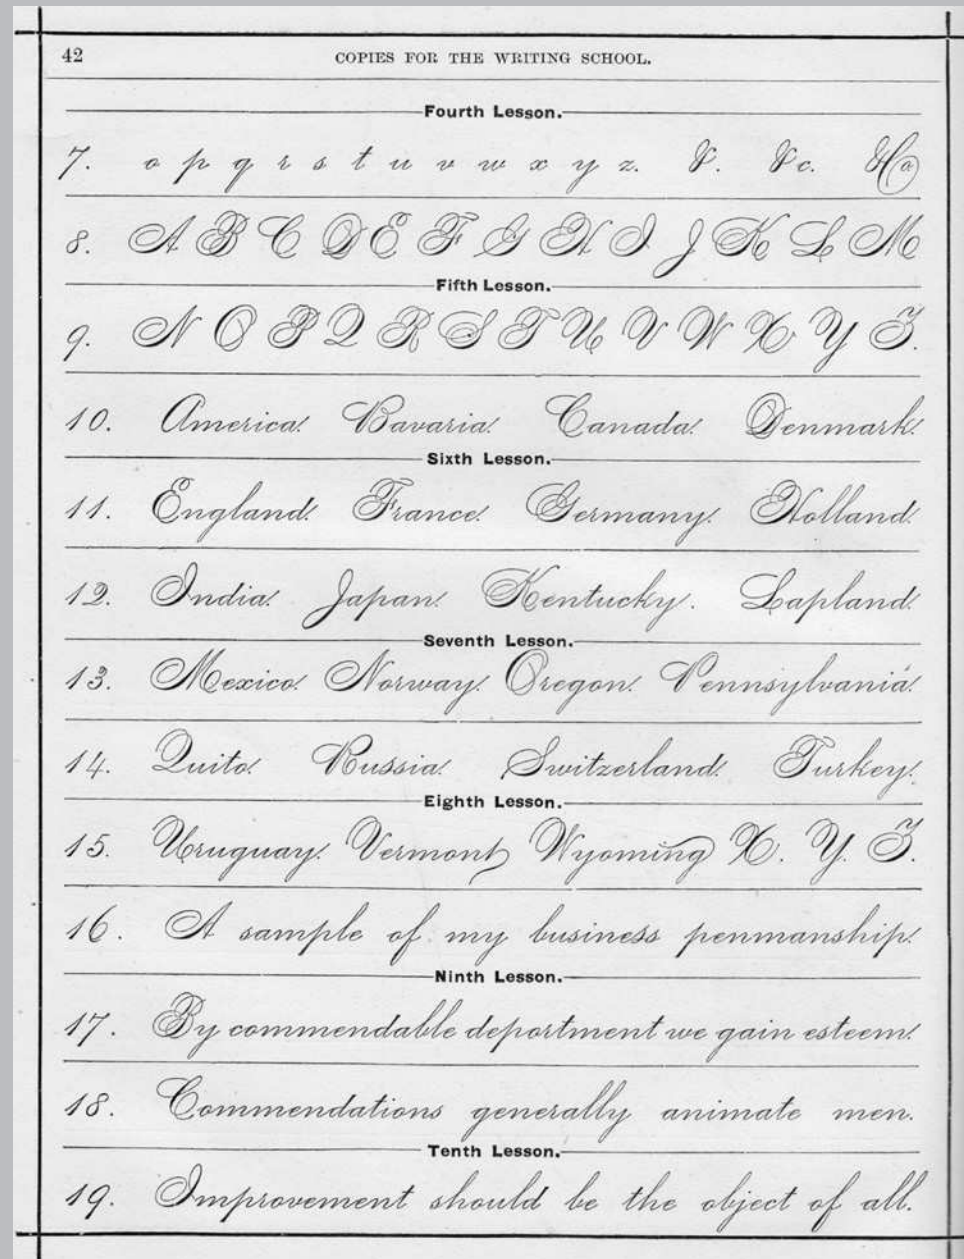 42 COPIES FOR THE WRITING SCHOOL.
Fourth Lesson.
7. o p q r s t u v w x y z. &. &c. &Co
8. A B C D E F G H I J K L M
Fifth Lesson.
9. N O P Q R S T U V W X Y Z.
10. America. Bavaria. Canada. Denmark.
Sixth Lesson.
11. England. France. Germany. Holland.
12. India. Japan. Kentucky. Lapland.
Seventh Lesson.
13. Mexico. Norway. Oregon. Pennsylvania.
14. Quito. Russia. Switzerland. Turkey.
Eighth Lesson.
15. Uruguay. Vermont Wyoming X. Y. Z.
16. A sample of my business penmanship.
Ninth Lesson.
17. By commendable deportment we gain esteem.
18. Commendations generally animate men.
Tenth Lesson.
19. Improvement should be the object of all.